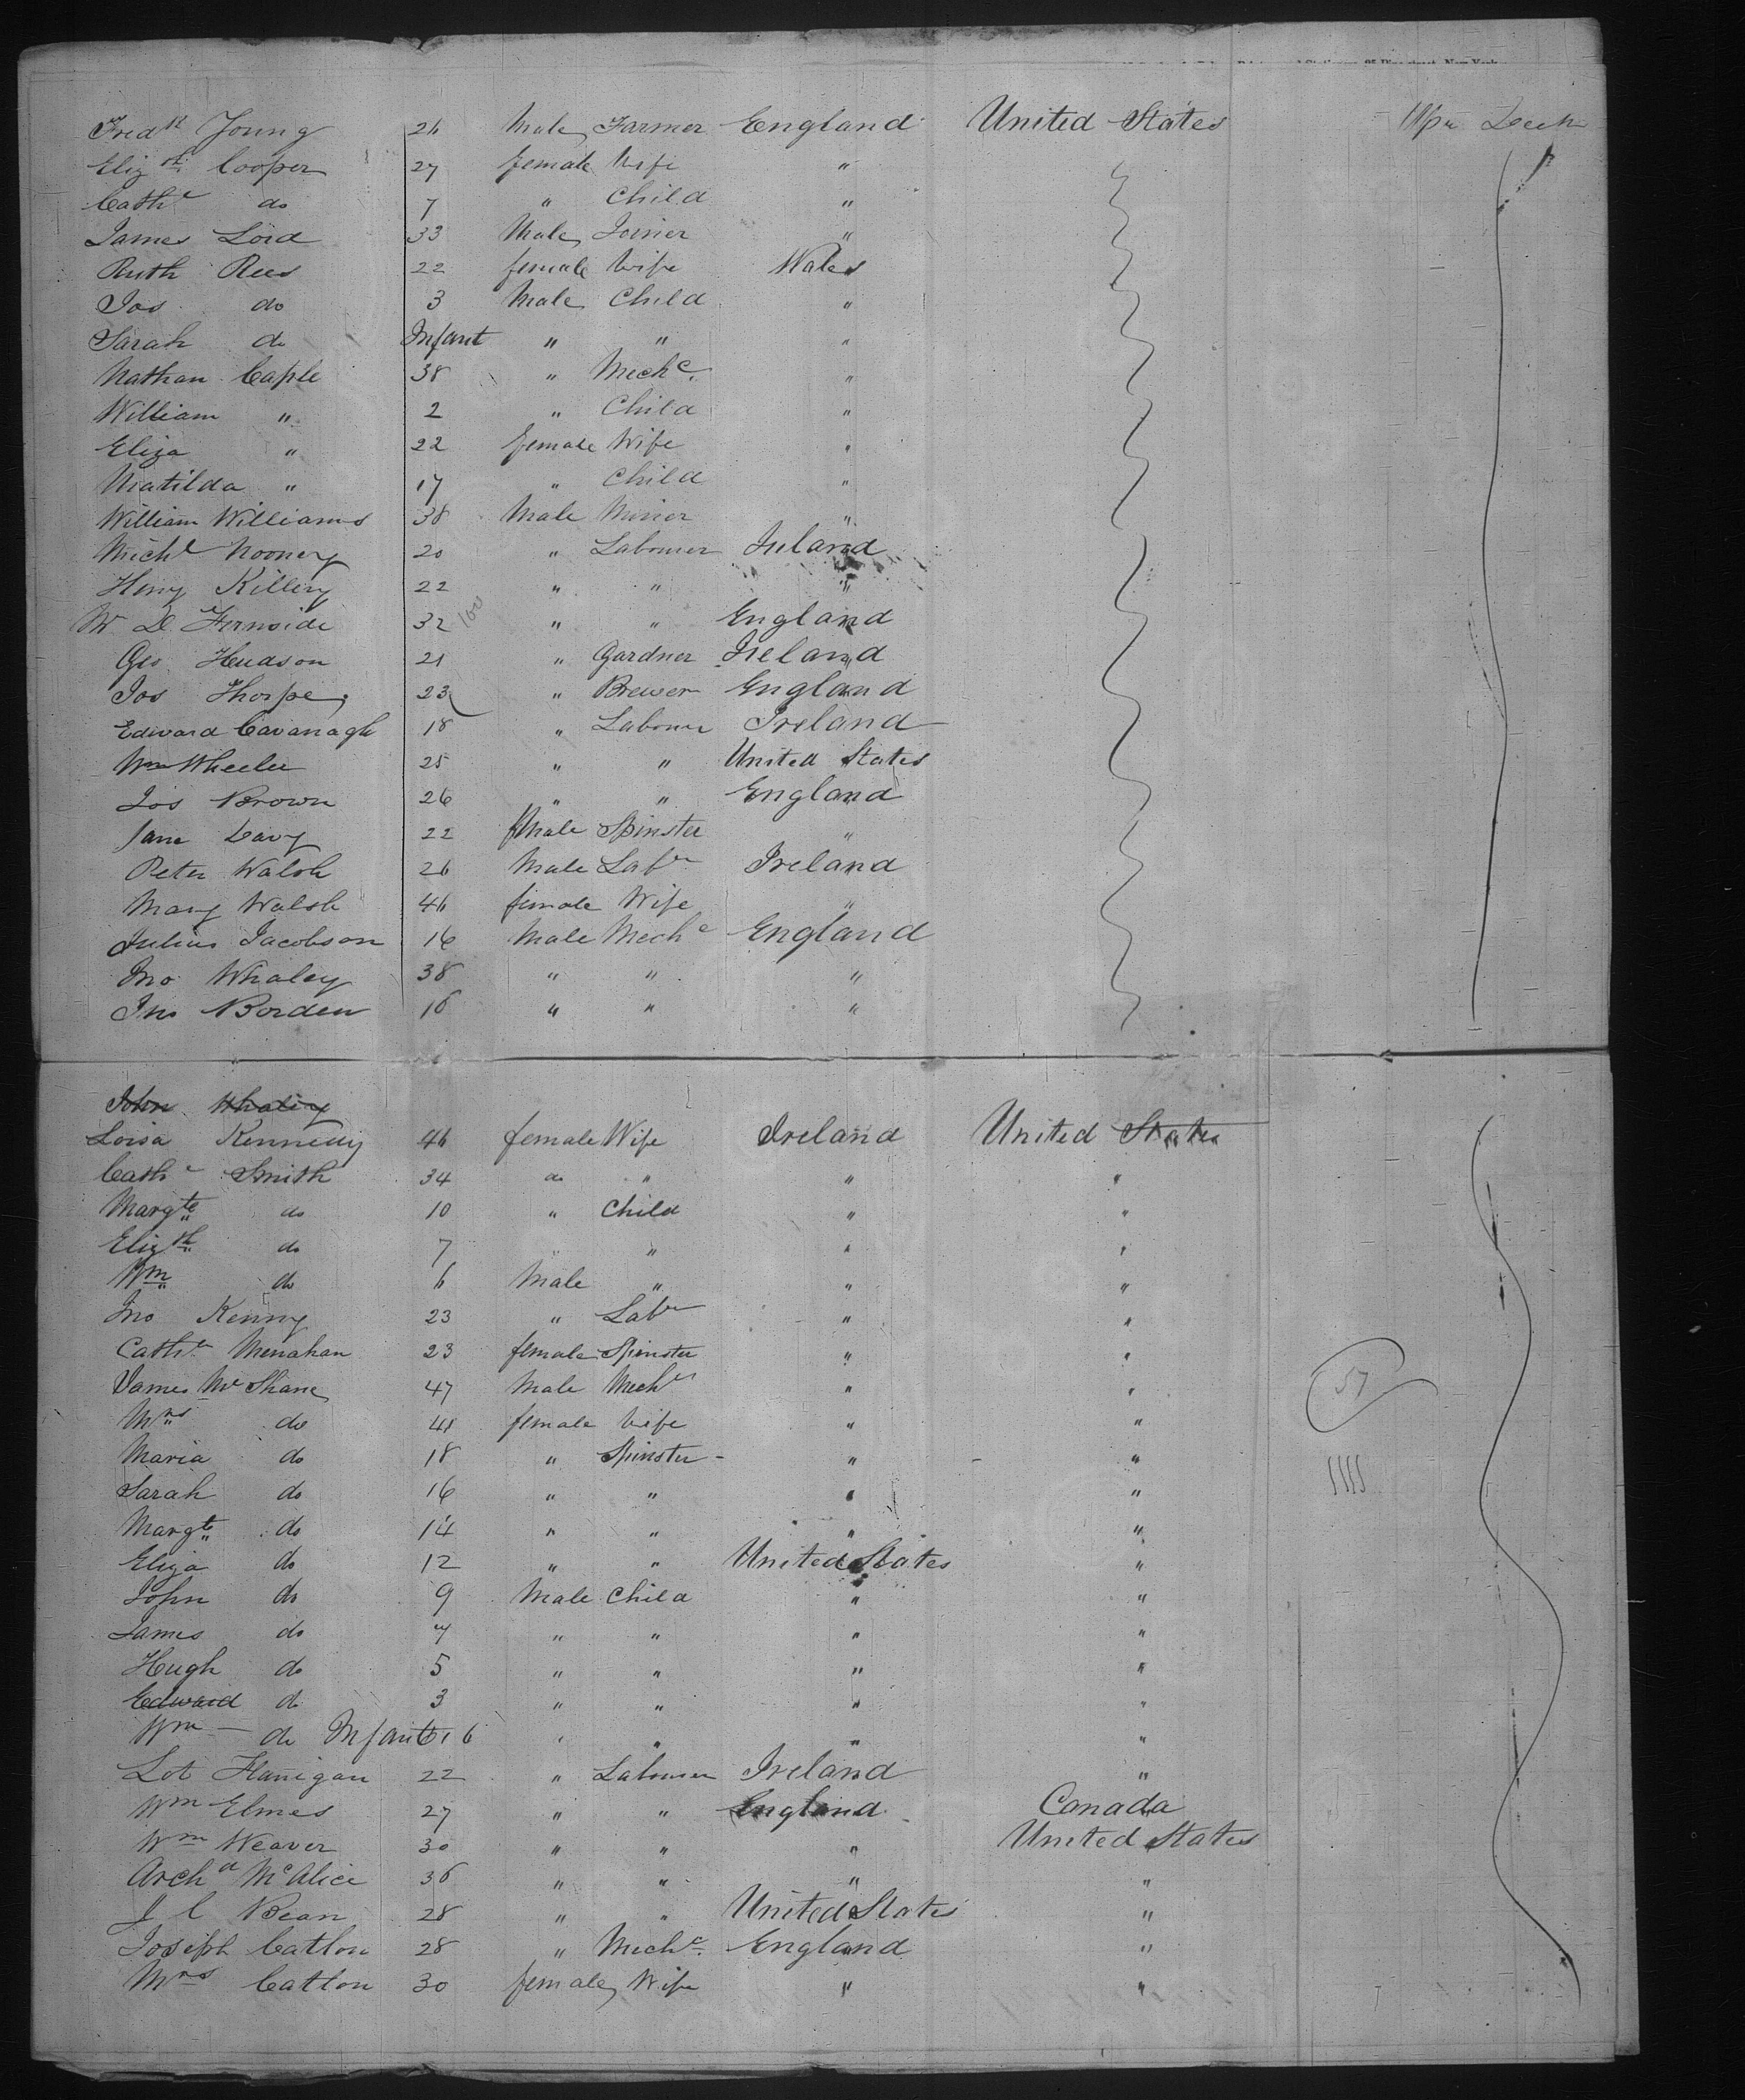 Fredk Young 26 Male Farmer England United States Upr Deck
Elizth Cooper 27 female Wife "
Cathe do 7 " Child "
James Lord 33 Male Joiner "
Ruth Rees 22 female Wife Wales
Jos do 3 Male Child "
Sarah do Infant " " "
Nathan Caple 38 " Mechc. "
William " 2 " Child "
Eliza " 22 female Wife "
Matilda " 17 " Child "
William Williams 38 Male Miner "
Michl Nooney 20 " Labourer Ireland
Heny Killery 22 " " "
W D Fernside 32 100 " " England
Geo Hudson 21 " Gardner Ireland
Jos Thorpe 23 " Brewer England
Edward Cavanagh 18 " Labourer Ireland
Wm Wheeler 25 " " United States
Jos Brown 26 " " England
Jane Davy 22 female Spinster "
Peter Walsh 26 Male Labr Ireland
Mary Walsh 46 female Wife "
Julius Jacobson 16 Male Mechc England
Jno Whaley 38 " " "
Jno Borden 16 " " "
John Whaley
Loisa Kennedy 46 female Wife Ireland United States
Cathe Smith 34 do " " "
Margte do 10 " Child " "
Elizth do 7 " " " "
Wm do 6 Male " " "
Jno Kenny 23 " Labr " "
Cathe Menahan 23 female Spinster " "
James McShane 47 Male Mechc " " 57
Mrs do 41 female Wife " "
Maria do 18 " Spinster - " - "
Sarah do 16 " " " "
Margte do 14 " " " "
Eliza do 12 " " United States "
John do 9 Male Child " "
James do 7 " " " "
Hugh do 5 " " " "
Edward do 3 " " " "
Wm do Infant 6 " " " "
Lot Flanigan 22 " Labourer Ireland "
Wm Elmes 27 " " England Canada
Wm Weaver 30 " " " United States
Archd McAlice 36 " " " "
J C Bean 28 " " United States "
Joseph Catlon 28 " Mechc England "
Mrs Catlon 30 female Wife " "